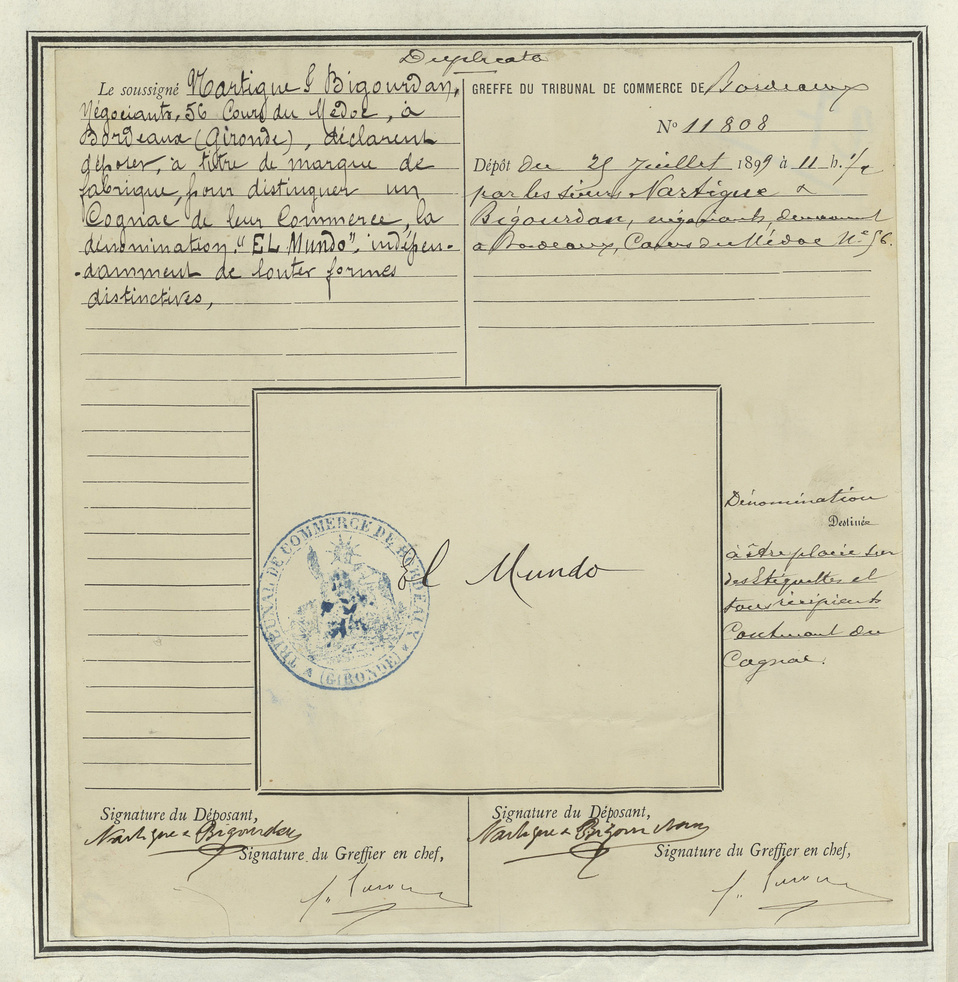 Duplicata
Le soussigné Nartigue & Bigourdan,
Négociants, 56 Cours du Médoc, à
Bordeaux (Gironde), déclarent
déposer, à titre de marque de
fabrique, pour distinguer un
Cognac de leur Commerce, la
dénomination "EL Mundo", indépen-
-damment de toutes formes
distinctives,
GREFFE DU TRIBUNAL DE COMMERCE DE Bordeaux
No 11808
Dépôt du 25 Juillet 1899 à 11 h. 1/2
par les sieurs Nartigue &
Bigourdan, négociants, demeurant
à Bordeaux, Cours du Médoc No 56.
El Mundo
TRIBUNAL DE COMMERCE DE BORDEAUX
(GIRONDE)
Dénomination
Destinée
à être placée sur
des Etiquettes et
tous récipients
Contenant du
Cognac.
Signature du Déposant,
Nartigue & Bigourdan
Signature du Greffier en chef,
Signature du Déposant,
Nartigue & Bigourdan
Signature du Greffier en chef,